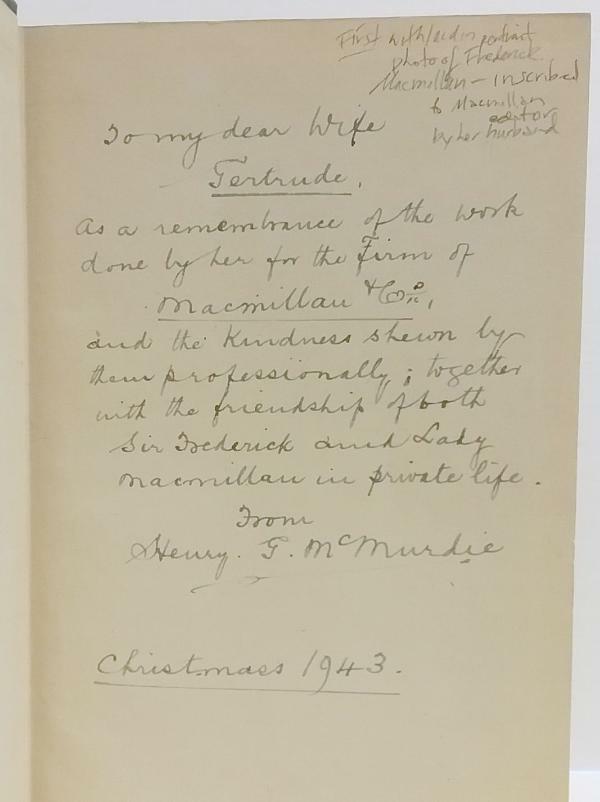 First with/ad in portrait
photo of Frederick
Macmillan – inscribed
to Macmillan
editor
by her husband
To my dear Wife
Gertrude,
As a remembrance of the work
done by her for the Firm of
Macmillan & Co.,
and the Kindness shewn by
them professionally; together
with the friendship of both
Sir Frederick and Lady
Macmillan in private life.
From
Henry. G. McMurdie
Christmass 1943.